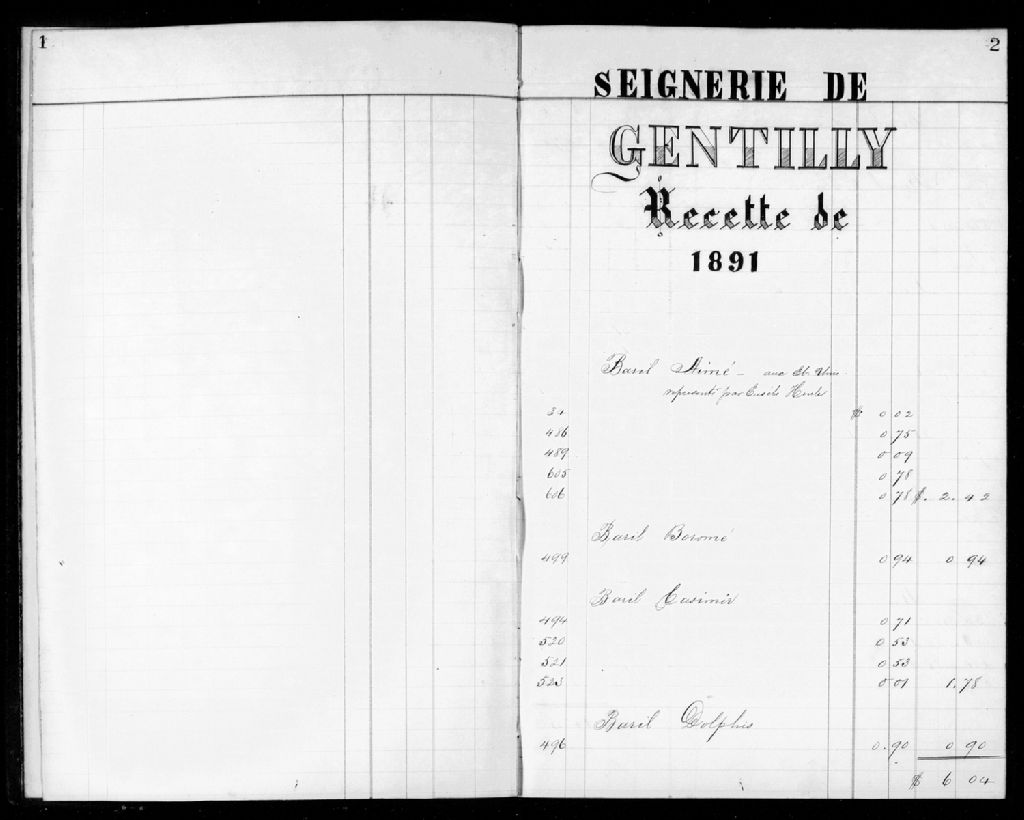 1
2
SEIGNERIE DE
GENTILLY
Recette de
1891
Baril Aimé – aux Et. Unis
représenté par Eusèbe
34 $ 0 02
486 0 75
489 0 09
605 0 78
606 0 78 $. 2. 42
Baril Boromé
499 0 94 0 94
Baril Casimir
494 0 71
520 0 53
521 0 53
523 0 01 1.78
Baril Dolphis
496 0.90 0 90
$ 6 04